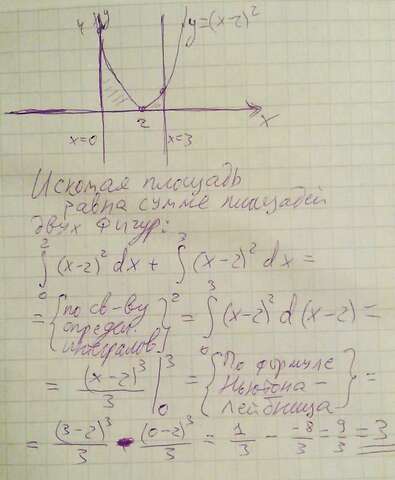 4 y y=(x-2)²
2 x
x=0 x=3
Искомая площадь
равна сумме площадей
двух фигур:
∫₀² (x-2)² dx + ∫₂³ (x-2)² dx =
= {по св-ву определ. интегралов} = ∫₀³ (x-2)² d(x-2) =
= (x-2)³/3 |₀³ = {По формуле Ньютона - Лейбница} =
= (3-2)³/3 - (0-2)³/3 = 1/3 - -8/3 = 9/3 = 3